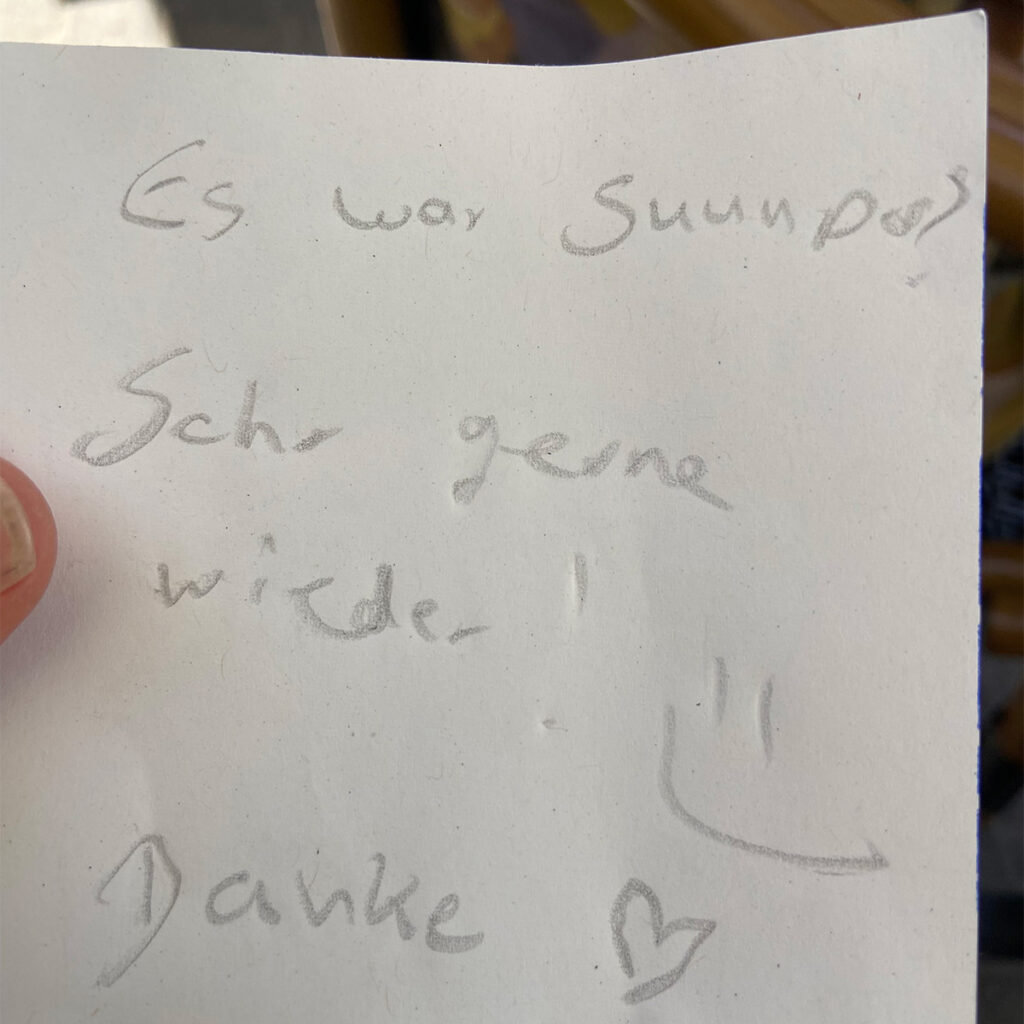 Es war suuuper!
Sehr gerne
wieder!
Danke ♡